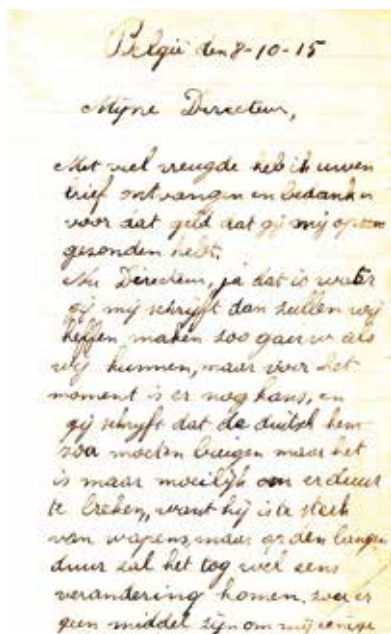 België den 8-10-15
Mijne Directeur,
Met viel vreugde heb ik uwen
brief ontvangen en bedank u
voor dat geld dat gij mij op
gesonden hebt.
Nu Directeur, ja dat is
gij mij schrijft dan sullen wij
maken soo gaerw als
wij kunnen, maar voor het
moment is er nog kans, en
gij schrijft dat de duitsch hem
soo moeten buigen maar het
is maar moeilijk om er duur
te breken, want hij is te sterk
van wapens, maar op den langen
duur sal het tog wel eens
verandering komen, soo er
geen middel zijn om mij eenige